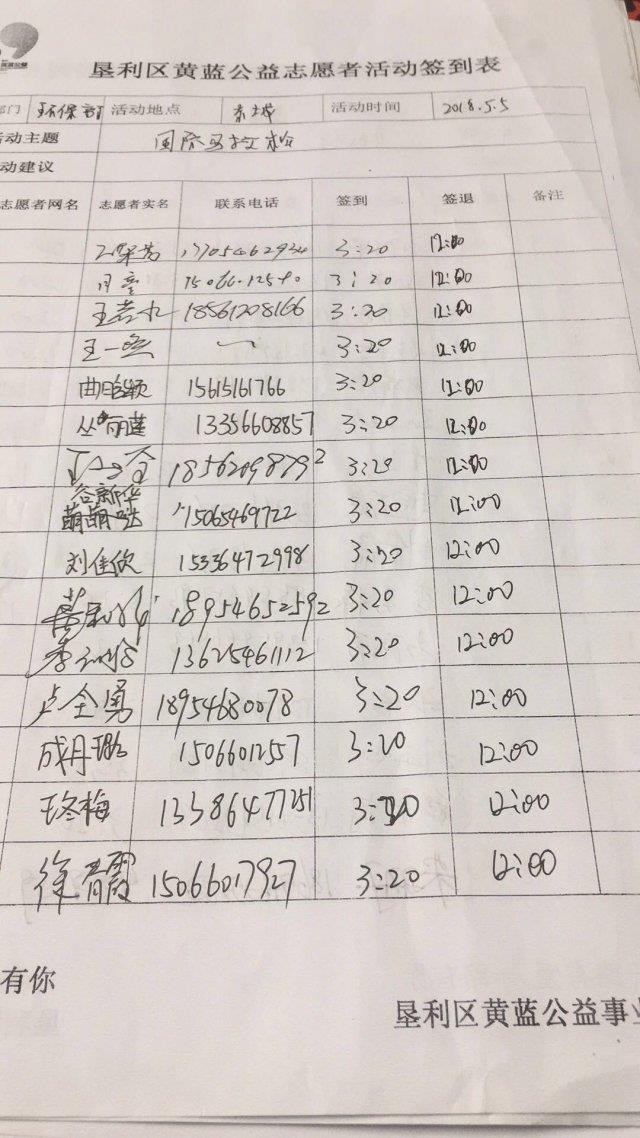 垦利区黄蓝公益志愿者活动签到表
部门 环保部 活动地点 活动时间 2018.5.5
活动主题 国际马拉松
动建议
志愿者网名 志愿者实名 联系电话 签到 签退 备注
17705462934 3:20 12:00
3:20 12:00
王若水 18561208166 3:20 12:00
王一 3:20 12:00
曲 颖 15615161766 3:20 12:00
丛丽莲 13356608857 3:20 12:00
18562098792 3:20 12:00
谷新华
萌萌哒 15065469722 3:20 12:00
刘佳欣 15336472998 3:20 12:00
18954652592 3:20 12:00
李 13625461112 3:20 12:00
卢全勇 18954680078 3:20 12:00
成丹璐 15066012557 3:20 12:00
王冬梅 13386477251 3:20 12:00
徐青霞 15066017927 3:20 12:00
有你
垦利区黄蓝公益事业